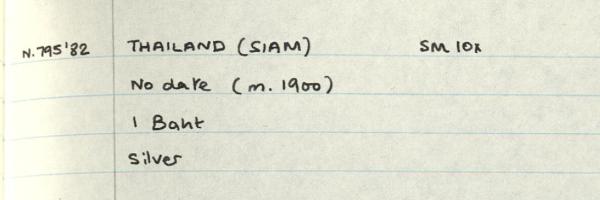 N.795'82 THAILAND (SIAM) SM 10x
No date (m. 1900)
1 Baht
Silver